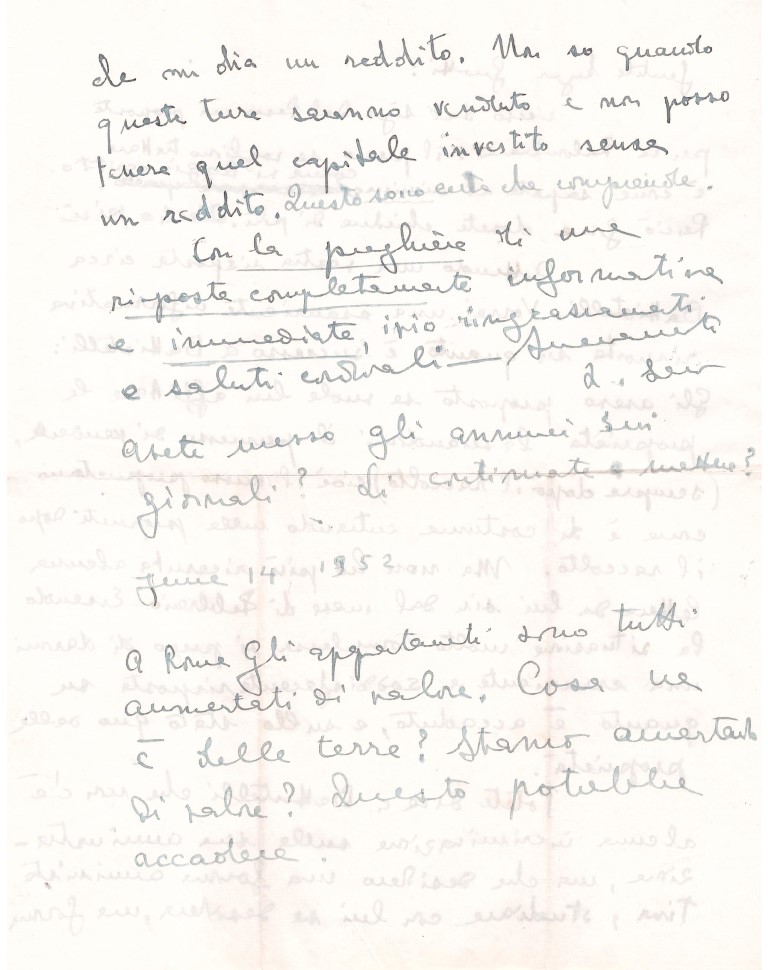 che mi dia un reddito. Non so quando
queste terre saranno vendute e non posso
tenere quel capitale investito senza
un reddito. Questo sono certa che comprende.
Con la preghiera di una
risposta completamente informativa
e immediata, invio ringraziamenti
e saluti cordiali —
avete messo gli annunci sui
giornali? Li continuate a mettere?
June 14 1952
A Roma gli appartamenti sono tutti
aumentati di valore. Cosa ne
è delle terre? Stanno aumentando
di valore? Questo potrebbe
accadere.